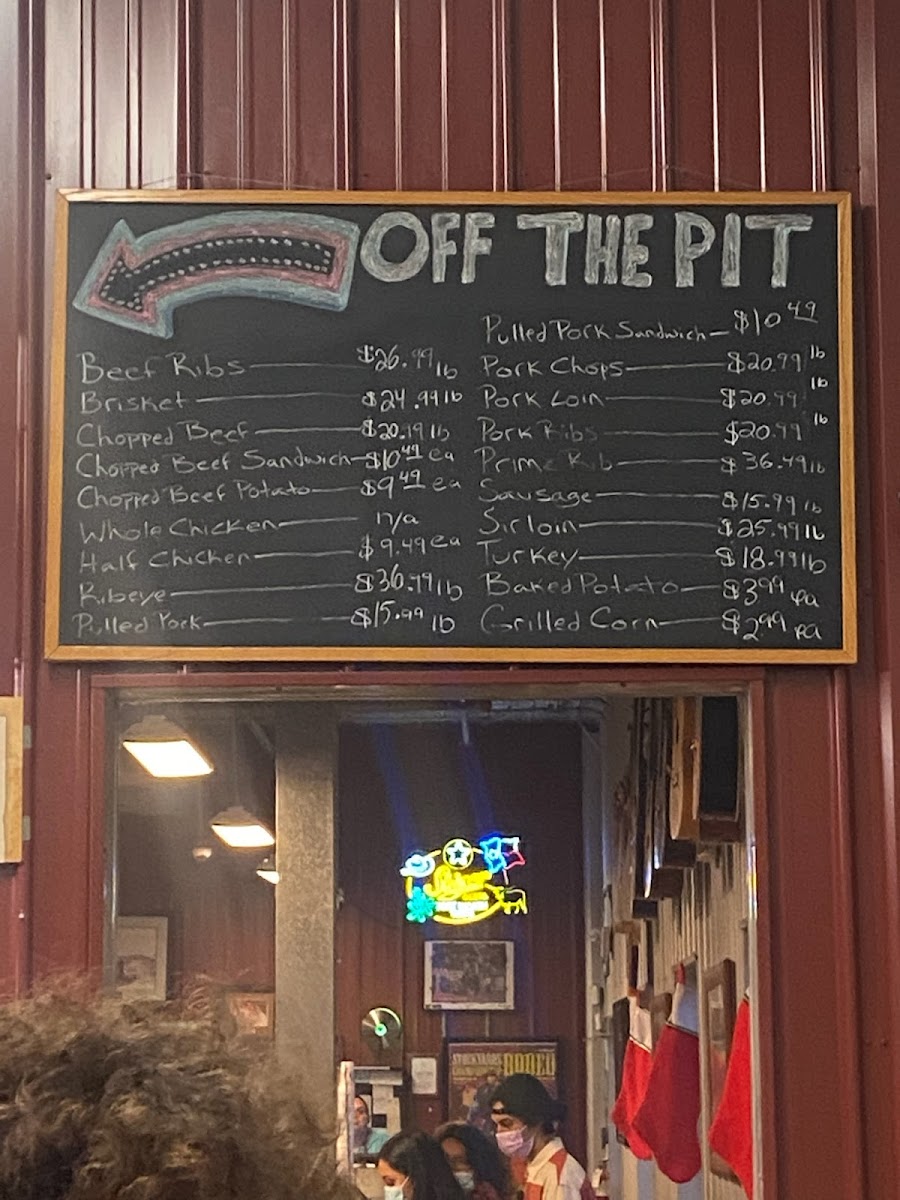 OFF THE PIT
Beef Ribs $26.99 lb
Brisket $24.99 lb
Chopped Beef $20.19 lb
Chopped Beef Sandwich $10 49 ea
Chopped Beef Potato $9 49 ea
Whole Chicken n/a
Half Chicken $9.49 ea
Ribeye $36.99 lb
Pulled Pork $15.99 lb
Pulled Pork Sandwich $10 49
Pork Chops $20.99 lb
Pork Loin $20.99 lb
Pork Ribs $20.99 lb
Prime Rib $36.49 lb
Sausage $15.99 lb
Sirloin $25.99 lb
Turkey $18.99 lb
Baked Potato $3 99 ea
Grilled Corn $2 99 ea
Shiner
STOCKYARDS
RODEO